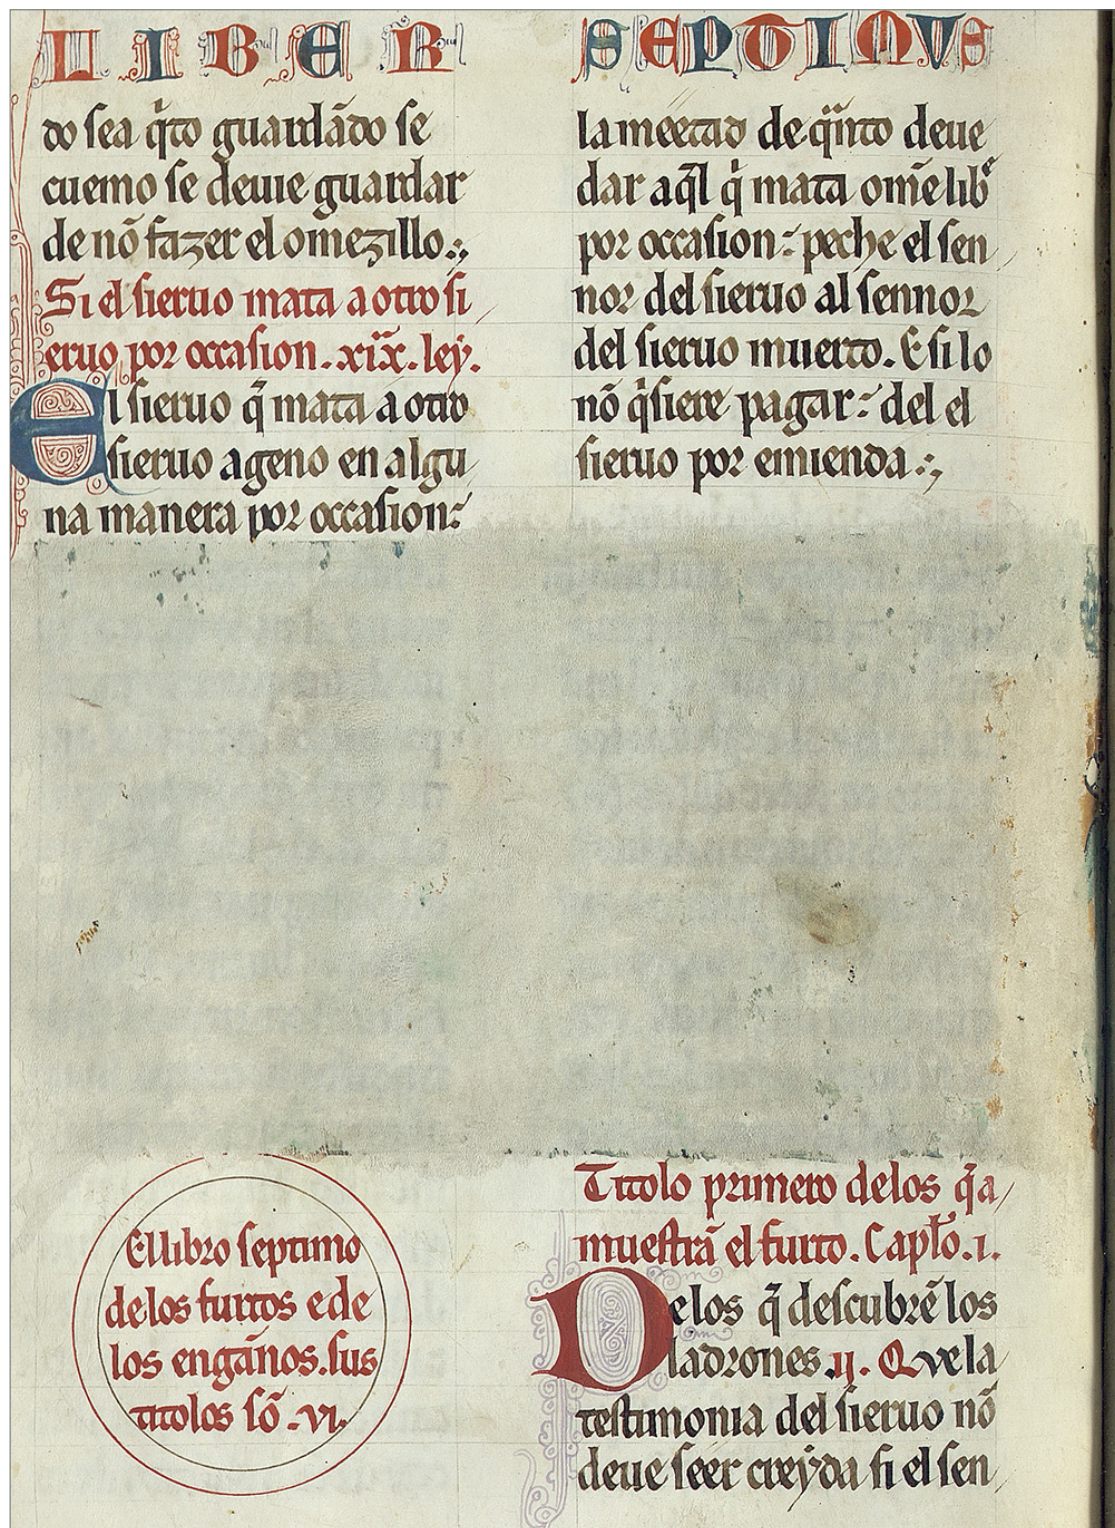 LIBER SEPTIMUS
do sea q̃to guardãdo se
cuemo se deuie guardar
de nõ fazer el omezillo.
Si el sieruo mata a otro si
eruo por occasion. xix. ley.
El sieruo q̃ mata a otro
sieruo ageno en algu
na manera por occasion:
la meetad de q̃nto deue
dar aq̃l q̃ mata om̃e lib̃e
por occasion: peche el sen
nor del sieruo al sennor
del sieruo muerto. E si lo
nõ q̃siere pagar: del el
sieruo por emienda.
El libro septimo
de los furtos e de
los engãnos. sus
titolos sõ .vi.
Titolo primero de los q̃ a
muestrã el furto. Capl̃o. i.
De los q̃ descubrẽ los
ladrones .ii. Que la
testimonia del sieruo nõ
deue seer creẏda si el sen